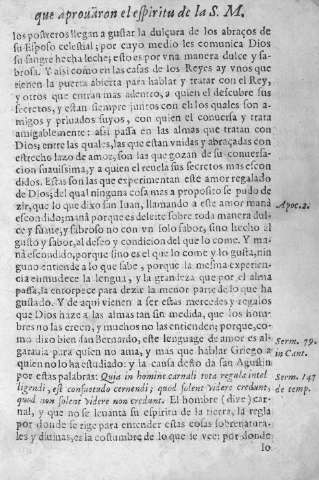 que aprouáron el espiritu de la S. M.
los postreros llegan a gustar la dulçura de los abraços de
su Esposo celestial; por cayo medio les comunica Dios
su sangre hecha leche; esto es por vna manera dulce y sa-
brosa. Y assi como en las casas de los Reyes ay vnos que
tienen la puerta abierta para hablar y tratar con el Rey,
y otros que entran mas adentro, a quien el descubre sus
secretos, y estan siempre juntos con el: los quales son a-
migos y priuados suyos, con quien el conuersa y trata
amigablemente: assi passa en las almas que tratan con
Dios; entre las quales, las que estan vnidas y abraçadas con
estrecho lazo de amor, son las que gozan de su conuersa-
cion suauissima, y a quien el reuela sus secretos mas escon
didos. Estas son las que experimentan este amor regalado
de Dios; del qual ninguna cosa mas a proposito se pudo de
zir, que lo que dixo san Iuan, llamando a este amor maná
escondido; maná porque es deleite sobre toda manera dul-
ce y suaue, y sabroso no con vn solo sabor, sino hecho al
gusto y sabor, al deseo y condicion del que lo come. Y ma-
ná escondido, porque sino es el que lo come y lo gusta, nin
guno entiende a lo que sabe, porque la mesma experien-
cia enmudece la lengua, y la grandeza que por el alma
passa, la entorpece para dezir la menor parte de lo que ha
gustado. Y de aqui vienen a ser estas mercedes y regalos
que Dios haze a las almas tan sin medida, que los hom-
bres no las creen, y muchos no las entienden; porque, co-
mo dixo bien san Bernardo, este lenguage de amor es al-
garauia para quien no ama, y mas que hablar Griego a
quien no lo ha estudiado: y la causa deño da san Agustin
por estas palabras: Quia in homine carnali tota regula intel
ligendi, est consuetudo cernendi; quod solent videre credunt,
quod non solent videre non credunt. El hombre (dize) car-
nal, y que no se leuanta su espiritu de la tierra, la regla
por donde se rige para entender estas cosas sobrenatura-
les y diuinas, es la costumbre de lo que se vee: por donde
lo
Apoc. 2.
Serm. 79.
in Cant.
Serm. 147
de temp.